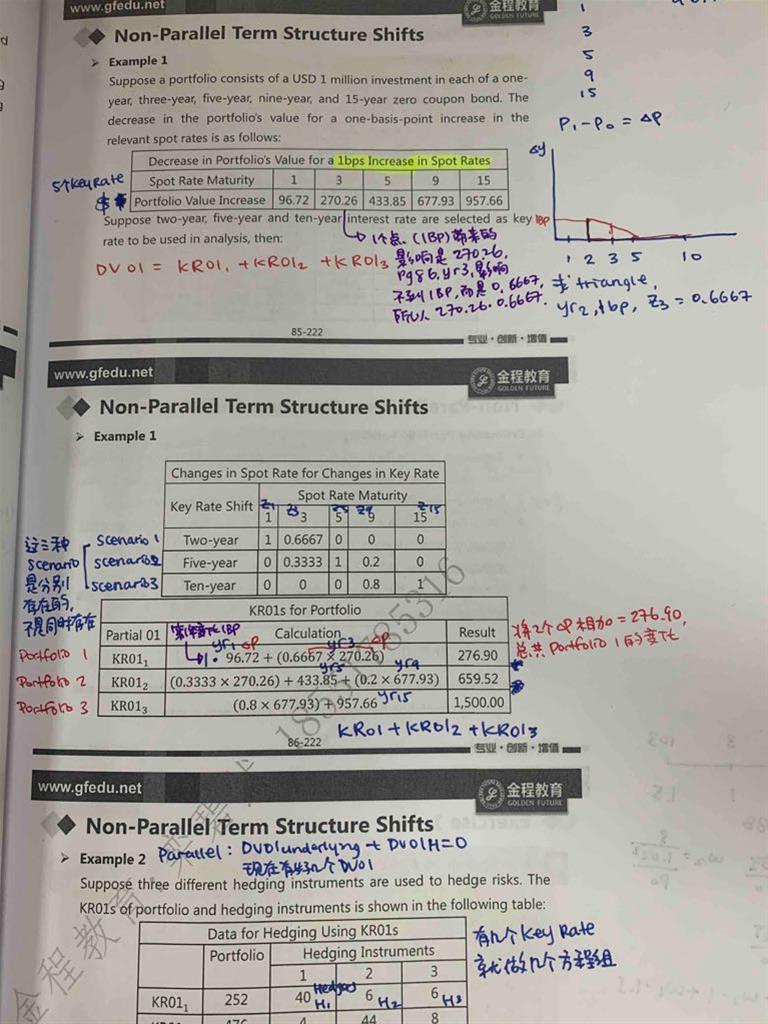 www.gfedu.net
金程教育
GOLDEN FUTURE
Non-Parallel Term Structure Shifts
Example 1
Suppose a portfolio consists of a USD 1 million investment in each of a one-
year, three-year, five-year, nine-year, and 15-year zero coupon bond. The
decrease in the portfolio's value for a one-basis-point increase in the
relevant spot rates is as follows:
1
3
5
9
15
P₁-P₀ = ΔP
Decrease in Portfolio's Value for a 1bps Increase in Spot Rates
5个Key Rate
Spot Rate Maturity 1 3 5 9 15
$ Portfolio Value Increase 96.72 270.26 433.85 677.93 957.66
Suppose two-year, five-year and ten-year interest rate are selected as key
rate to be used in analysis, then:
DV01 = KR01₁ + KR01₂ + KR01₃
1个点 (1BP) 带来的
影响是 270.26,
Pg86, yr3, 影响
不到1BP, 而是0.6667,
所以 270.26·0.6667.
Δy
1BP
1 2 3 5 10
triangle,
yr2, 1bp, Z₃ = 0.6667
85-222
专业·创新·增值
www.gfedu.net
金程教育
GOLDEN FUTURE
Non-Parallel Term Structure Shifts
Example 1
Changes in Spot Rate for Changes in Key Rate
Key Rate Shift Spot Rate Maturity
Z₁ Z₃ Z₅ Z₉ Z₁₅
1 3 5 9 15
Scenario 1 Two-year 1 0.6667 0 0 0
Scenario 2 Five-year 0 0.3333 1 0.2 0
Scenario 3 Ten-year 0 0 0 0.8 1
这三种
scenario
是分别
存在的,
不是同时存在
KR01s for Portfolio
Partial 01 Calculation Result
第1年变化1BP
yr1 ΔP yr3 ΔP
Portfolio 1 KR01₁ 1· 96.72 + (0.6667 × 270.26) 276.90
yr5 yr9
Portfolio 2 KR01₂ (0.3333 × 270.26) + 433.85 + (0.2 × 677.93) 659.52
Portfolio 3 KR01₃ (0.8 × 677.93) + 957.66 yr15 1,500.00
将2个ΔP相加 = 276.90,
总共Portfolio 1的变化
KR01 + KR01₂ + KR01₃
86-222
专业·创新·增值
www.gfedu.net
金程教育
GOLDEN FUTURE
Non-Parallel Term Structure Shifts
Example 2
Parallel: DV01underlying + DV01H=0
现在有3个DV01
Suppose three different hedging instruments are used to hedge risks. The
KR01s of portfolio and hedging instruments is shown in the following table:
Data for Hedging Using KR01s
Portfolio Hedging Instruments
1 2 3
Hedged
KR01₁ 252 40 H₁ 6 H₂ 6 H₃
44 8
有几个Key Rate
就做几个方程组
金程教育